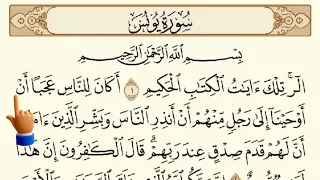 سُورَةُ يُونُسَ
بِسْمِ ٱللَّهِ ٱلرَّحْمَٰنِ ٱلرَّحِيمِ
الٓر ۚ تِلْكَ ءَايَٰتُ ٱلْكِتَٰبِ ٱلْحَكِيمِ ١ أَكَانَ لِلنَّاسِ عَجَبًا أَنْ
أَوْحَيْنَآ إِلَىٰ رَجُلٍ مِّنْهُمْ أَنْ أَنذِرِ ٱلنَّاسَ وَبَشِّرِ ٱلَّذِينَ ءَامَنُوٓا۟
أَنَّ لَهُمْ قَدَمَ صِدْقٍ عِندَ رَبِّهِمْ ۗ قَالَ ٱلْكَٰفِرُونَ إِنَّ هَٰذَا